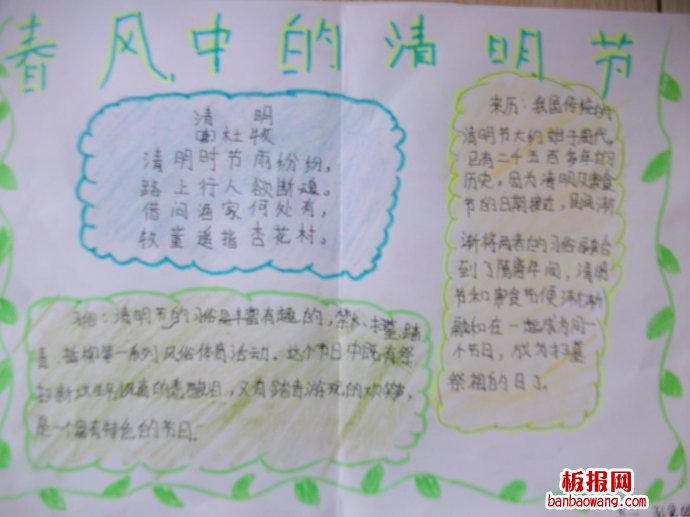 春风中的清明节
清 明
杜牧
清明时节雨纷纷，
路上行人欲断魂。
借问酒家何处有，
牧童遥指杏花村。
来历：我国传统的
清明节大约始于周代。
已有二千五百多年的
历史，因为清明及寒食
节的日期接近，民间渐
渐将两者的习俗融合
到了隋唐年间，清明
节和寒食节便渐渐
融和在一起成为同一
个节日，成为扫墓
祭祖的日了
习俗：清明节的习俗是丰富有趣的，禁火、扫墓、踏
青、插柳等一系列风俗体育活动。这个节日中既有祭
扫新坟生别死离的悲酸泪，又有踏青游玩的欢笑声，
是一个富有特色的节日。
板报网
banbaowang.com